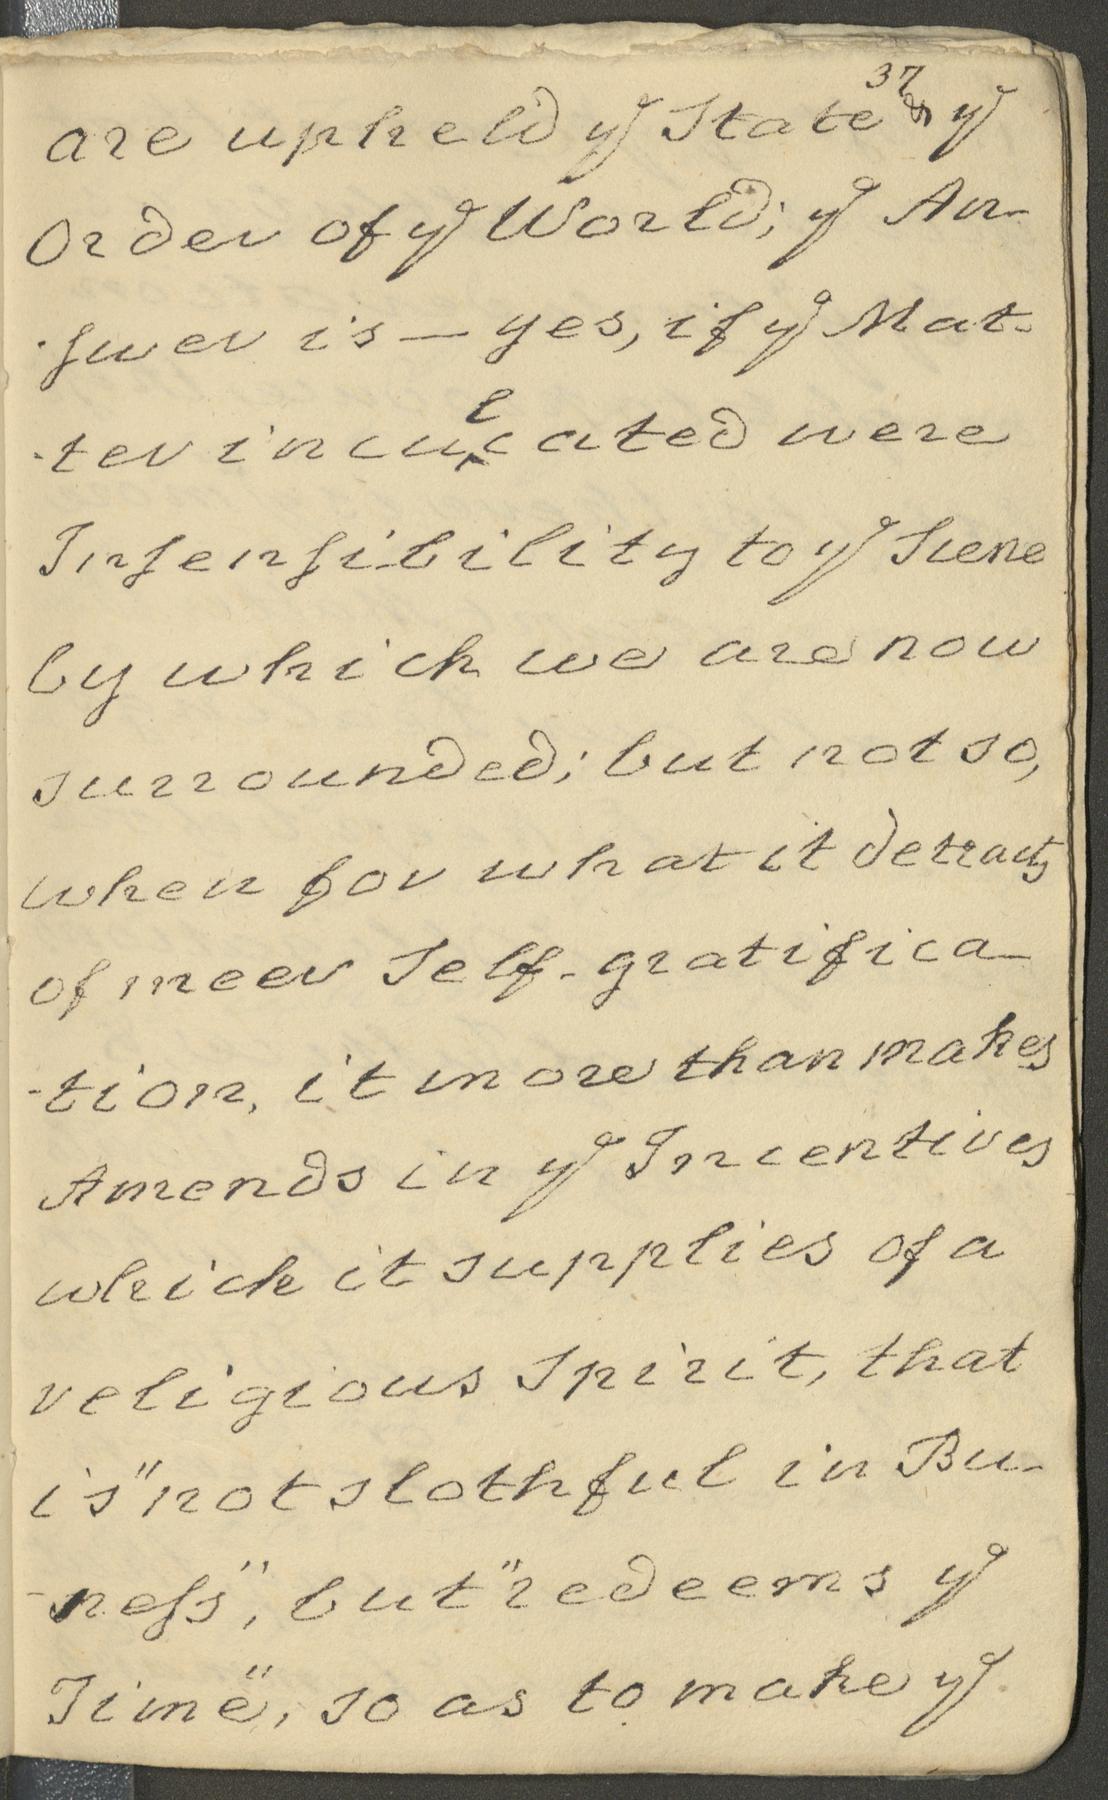 37
are upheld yᵉ State & yᵉ
Order of yᵉ World; yᵉ An-
-swer is — yes, if yᵉ Mat-
-ter inculcated were
Insensibility to yᵉ Scene
by which we are now
surrounded; but not so,
when for what it detracts
of meer Self-gratifica-
-tion, it more than makes
Amends in yᵉ Incentives
which it supplies of a
religious Spirit, that
is "not slothful in Bu-
-ness", but "redeems yᵉ
Time", so as to make yᵉ